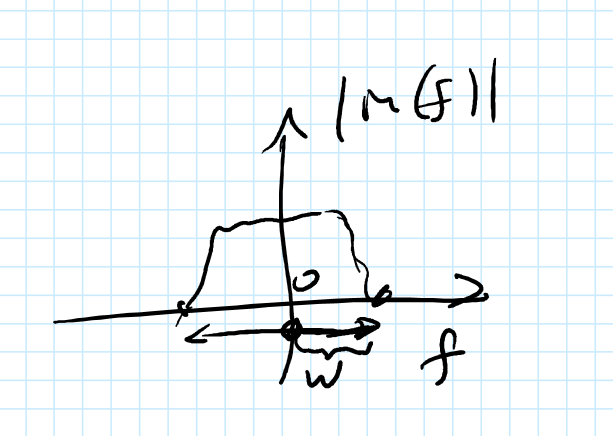 |M(f)|
0
W
f